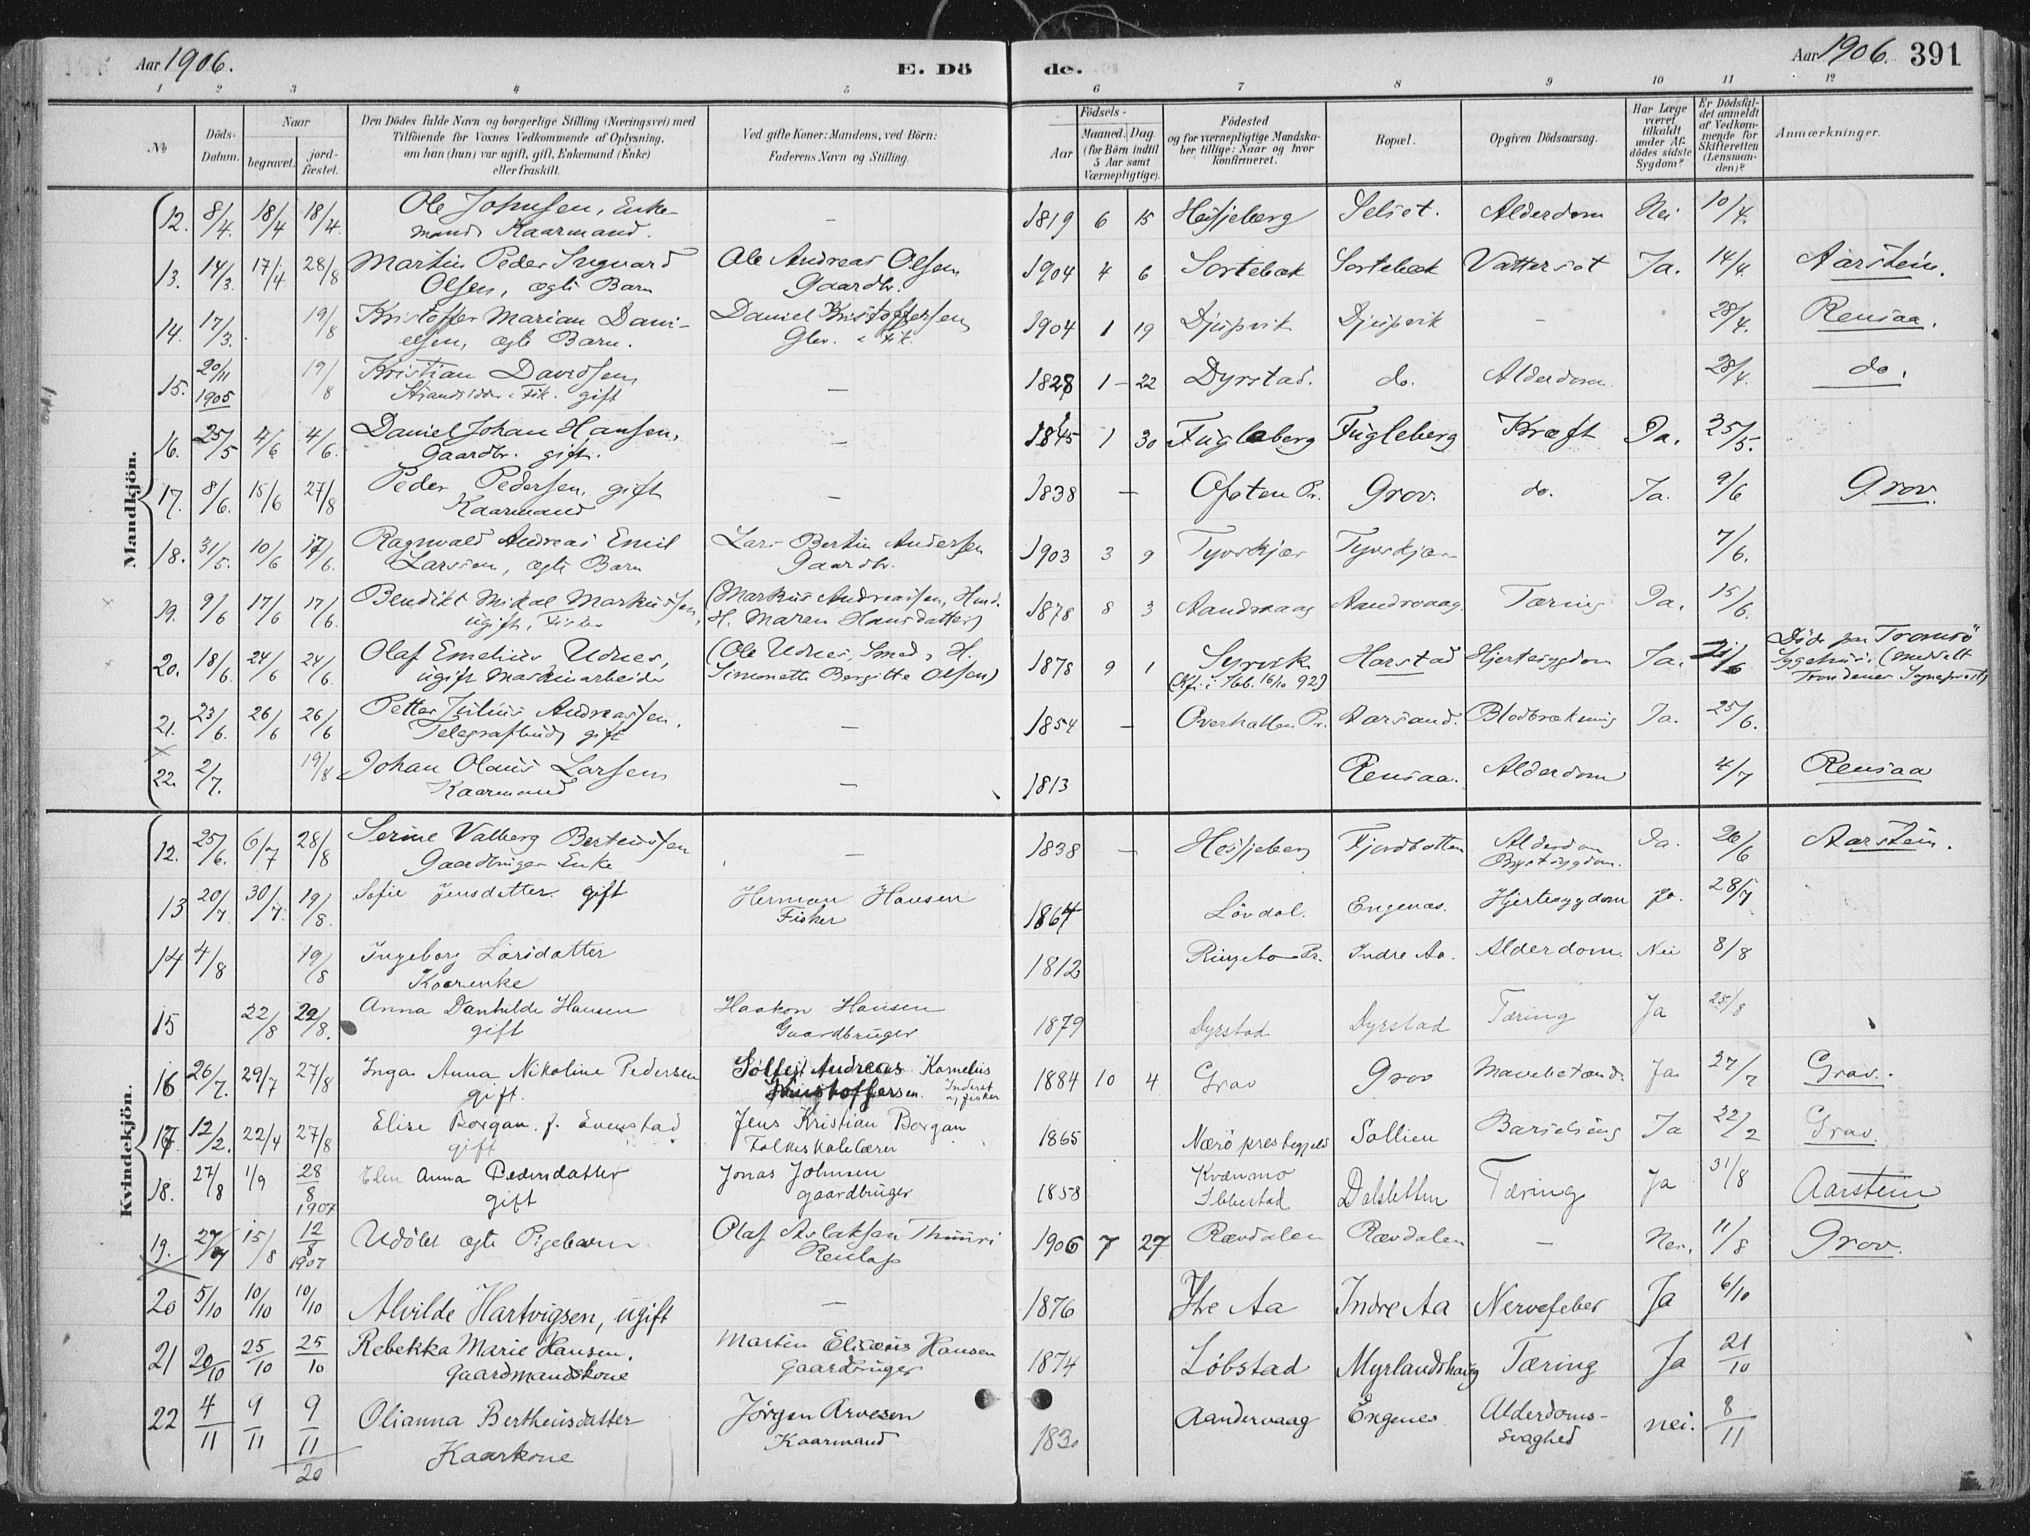 Aar 1906. E. Dö
de. Aar 1906. 391
1 2 3 4 5 6 7 8 9 10 11 12
No
Döds-
Datum.
Naar
begravet.
jord-
fæstet.
Den Dödes fulde Navn og borgerlige Stilling (Næringsvei) med
Tilföiende for Voxnes Vedkommende af Oplysning,
om han (hun) var ugift, gift, Enkemand (Enke)
eller fraskilt.
Ved gifte Koner: Mandens, ved Börn:
Faderens Navn og Stilling.
Födsels-
Aar
Maaned. Dag
(for Börn indtil
5 Aar samt
Værnepligtige).
Födested
og for værnepligtige Mandska-
ber tillige: Naar og hvor
konfirmeret.
Bopæl.
Opgiven Dödsaarsag.
Har Læge
været
tilkaldt
under Af-
dödes sidste
Sygdom?
Er Dödsfal-
det anmeldt
af Vedkom-
mende for
Skifteretten
(Lensman-
den)?
Anmærkninger.
Mandkjön.
12. 8/4. 18/4 18/4. Ole Johnsen, Enke- — 1819 6 15 Hesjeberg Selset. Alderdom Nei 10/4.
mand Kaarmand.
13. 14/3. 17/4 28/8 Martin Peder Ingvard Ole Andreas Olsen 1904 4 6 Sortebæk Sortebæk Vattersot Ja. 14/4. Aarstein.
Olsen, ægte Barn Gaardbr.
14. 17/3. 19/8 Kristoffer Marian Dani- Daniel Kristoffersen 1904 1 19 Djupvik Djupvik — 28/4. Rensaa.
elsen, ægte Barn.
15. 20/11 1905 19/8 Kristian Davidsen — 1828 1 - 22 Dyrstad. do. Alderdom 28/4. do.
gift
16. 25/5 4/6 4/6. Daniel Johan Hansen, — 1845 1 30 Fugleberg Fugleberg Kræft Ja. 25/5.
Gaardbr. gift.
17. 8/6. 15/6 27/8 Peder Pedersen, gift — 1838 — Ofoten Pr. Grov. do. Ja. 9/6 Grov.
Kaarmand
18. 31/5. 10/6 17/6. Ragnvald Andreas Emil Lars Bertin Andersen 1903 3 9 Tyvskjær Tyvskjær 7/6.
Larsen, ægte Barn Gaardbr.
19. 9/6 17/6 17/6. Benedikt Mikal Markussen, (Markus Andreassen, Husm. 1878 8 3 Aandvaag Aandvaag Tæring Ja. 15/6.
ugift, Fisker H. Maren Hansdatter)
20. 18/6. 24/6 24/6. Olaf Emelius Udnes, (Ole Udnes, Smed, H. 1878 9 1 Syrvik Harstad Hjertesygdom Ja. 21/6 Döde paa Tromsö
ugift Maskinarbeider Simonette Bergitte Olsen) (Kfi. i Ibb. 16/10 92) Sygehus. (meddelt
Trondenes Sognepræst)
21. 23/6. 26/6 26/6 Petter Julius Andreassen. — 1854 — Overhallen Pr. Aarsand. Blodbrækning Ja. 25/6.
Telegrafbud, gift
22. 2/7. 19/8 Johan Olaus Larsen — 1813 Rensaa. Alderdom 4/7 Rensaa
Kaarmand
Kvindekjön.
12. 25/6. 6/7 28/8 Serine Valberg Berteussen — 1838 — Hesjeberg Fjordbotten Alderdom Ja. 26/6 Aarstein.
Gaardbruger Enke Brystsygdom.
13 20/7. 30/7. 19/8. Sofie Jensdatter. gift Herman Hansen 1864 Lövdal. Engenæs. Hjertesygdom Ja. 28/7
Fisker
14 4/8 19/8 Ingeborg Larsdatter 1812 Ringebo Pr. Indre Aa. Alderdom. Nei 8/8
Kaarenke
15 22/8 22/8. Anna Danhilde Hansen Haakon Hansen 1879 Dyrstad Dyrstad Tæring Ja 25/8
gift Gaardbruger
16 26/7. 29/7 27/8 Inga Anna Nikoline Pedersen Sölfest Andreas Kornelius 1884 10 4 Grav Grov Mavebetænd. Ja 27/7 Grav.
gift. Kristoffersen. Inderst og fisker
17 12/2. 22/4 27/8 Elise Borgan f. Evenstad Jens Kristian Borgan 1865 Nærö prestegjeld Sollien Barselseng Ja 22/2 Grav.
gift Folkeskolelærer
18. 27/8 1/9 28/8 1907 Elen Anna Pedersdatter Jonas Johnsen 1858 Kvænmo Dalsletten Tæring Ja 31/8 Aarstein
gift gaardbruger Ibbestad
19. 27/7 15/8 12/8 1907 Udöbt ægte Pigebarn Olaf Aslaksen Thuuri 1906 7 27 Rævdalen Rævdalen — Nei. 11/8 Grov.
Renlap
20 5/10 10/10 10/10 Alvilde Hartvigsen, ugift — 1876 Ytre Aa Indre Aa Nervefeber Ja 6/10
21 20/10 25/10 25/10 Rebekka Marie Hansen. Martin Elisæus Hansen 1874 Löbstad Myrlandshaug Tæring Ja 21/10
Gaardmandskone gaardbruger
22 4/11 9/11 9/11 Olianna Bertheusdatter Jörgen Arvesen 1830 Aandervaag Engenes Alderdoms- nei. 8/11
20 Kaarkone Kaarmand svaghed